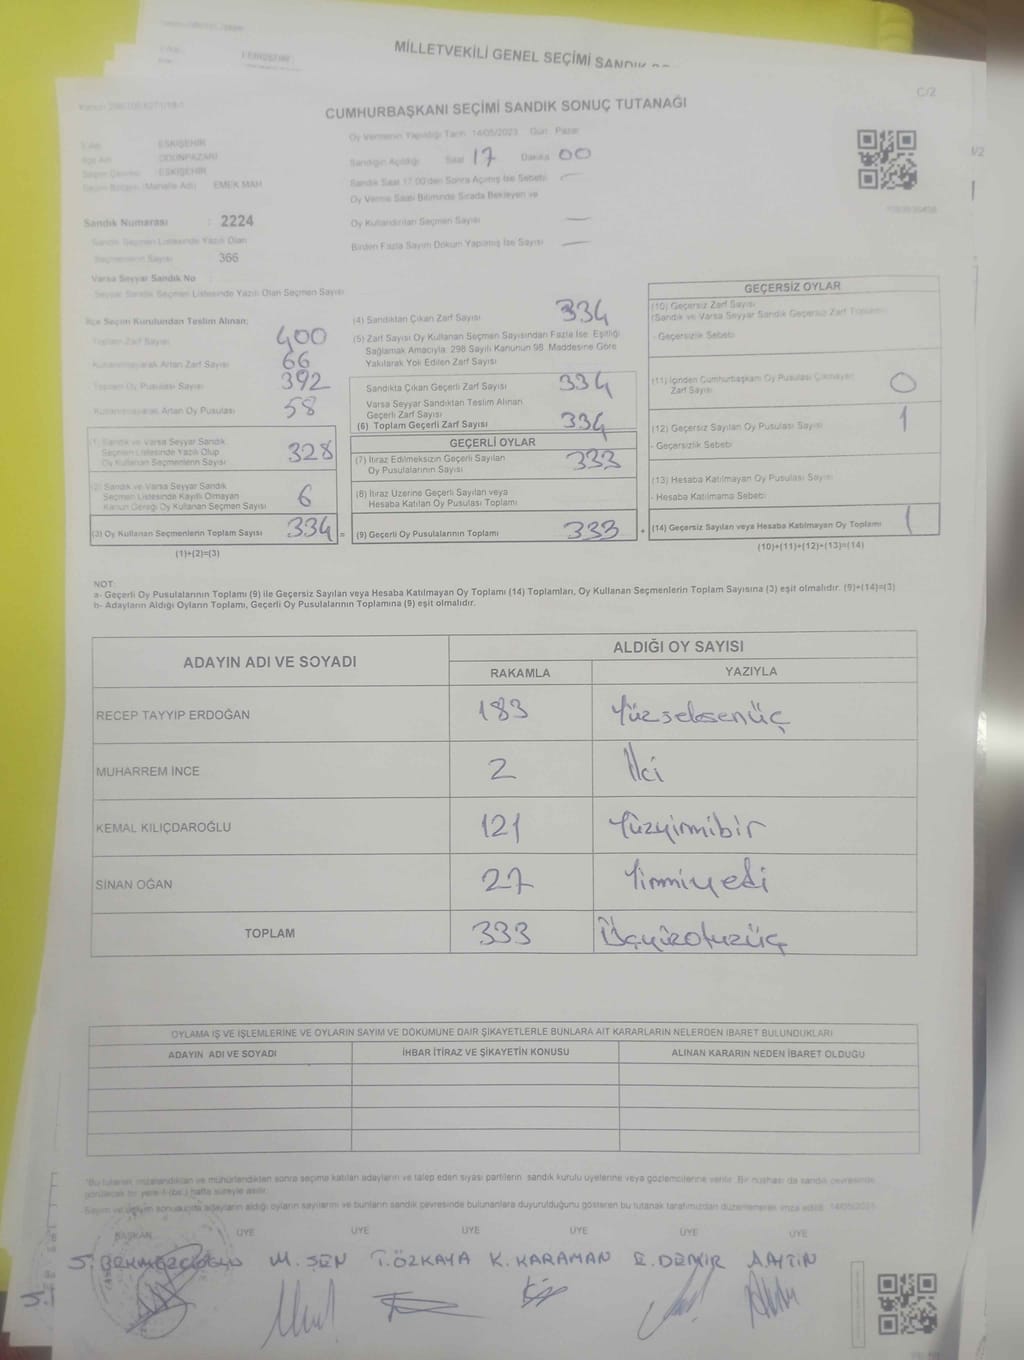 MİLLETVEKİLİ GENEL SEÇİMİ SANDIK
C/2
CUMHURBAŞKANI SEÇİMİ SANDIK SONUÇ TUTANAĞI
Oy Vermenin Yapıldığı Tarih 14/05/2023 Gün Pazar
ESKİŞEHİR
ODUNPAZARI
ESKİŞEHİR
EMEK MAH
Sandığın Açıldığı Saat 17 Dakika 00
Sandık Saat 17:00'den Sonra Açılmış İse Sebebi
Oy Verme Saati Bitiminde Sırada Bekleyen ve
Oy Kullandırılan Seçmen Sayısı
Birden Fazla Sayım Döküm Yapılmış İse Sayısı
Sandık Numarası : 2224
Sandık Seçmen Listesinde Yazılı Olan
Seçmenlerin Sayısı 366
Varsa Seyyar Sandık No
Seyyar Sandık Seçmen Listesinde Yazılı Olan Seçmen Sayısı
İlçe Seçim Kurulundan Teslim Alınan:
Toplam Zarf Sayısı 400
Kullanılmayarak Artan Zarf Sayısı 66
Toplam Oy Pusulası Sayısı 392
Kullanılmayarak Artan Oy Pusulası 58
(1) Sandık ve Varsa Seyyar Sandık
Seçmen Listesinde Yazılı Olup
Oy Kullanan Seçmenlerin Sayısı 328
(2) Sandık ve Varsa Seyyar Sandık
Seçmen Listesinde Kayıtlı Olmayan
Kanun Gereği Oy Kullanan Seçmen Sayısı 6
(3) Oy Kullanan Seçmenlerin Toplam Sayısı 334 =
(1)+(2)=(3)
(4) Sandıktan Çıkan Zarf Sayısı 334
(5) Zarf Sayısı Oy Kullanan Seçmen Sayısından Fazla İse, Eşitliği
Sağlamak Amacıyla, 298 Sayılı Kanunun 98. Maddesine Göre
Yakılarak Yok Edilen Zarf Sayısı
Sandıkta Çıkan Geçerli Zarf Sayısı 334
Varsa Seyyar Sandıktan Teslim Alınan
Geçerli Zarf Sayısı
(6) Toplam Geçerli Zarf Sayısı 334
GEÇERLİ OYLAR
(7) İtiraz Edilmeksizin Geçerli Sayılan
Oy Pusulalarının Sayısı 333
(8) İtiraz Üzerine Geçerli Sayılan veya
Hesaba Katılan Oy Pusulası Toplamı
(9) Geçerli Oy Pusulalarının Toplamı 333 +
GEÇERSİZ OYLAR
(10) Geçersiz Zarf Sayısı
(Sandık ve Varsa Seyyar Sandık Geçersiz Zarf Toplamı)
- Geçersizlik Sebebi
(11) İçinden Cumhurbaşkanı Oy Pusulası Çıkmayan
Zarf Sayısı 0
(12) Geçersiz Sayılan Oy Pusulası Sayısı 1
- Geçersizlik Sebebi
(13) Hesaba Katılmayan Oy Pusulası Sayısı
- Hesaba Katılmama Sebebi
(14) Geçersiz Sayılan veya Hesaba Katılmayan Oy Toplamı 1
(10)+(11)+(12)+(13)=(14)
NOT:
a- Geçerli Oy Pusulalarının Toplamı (9) ile Geçersiz Sayılan veya Hesaba Katılmayan Oy Toplamı (14) Toplamları, Oy Kullanan Seçmenlerin Toplam Sayısına (3) eşit olmalıdır. (9)+(14)=(3)
b- Adayların Aldığı Oyların Toplamı, Geçerli Oy Pusulalarının Toplamına (9) eşit olmalıdır.
ADAYIN ADI VE SOYADI ALDIĞI OY SAYISI
RAKAMLA YAZIYLA
RECEP TAYYİP ERDOĞAN 183 Yüzseksenüç
MUHARREM İNCE 2 İki
KEMAL KILIÇDAROĞLU 121 Yüzyirmibir
SİNAN OĞAN 27 Yirmiyedi
TOPLAM 333 Üçyüzotuzüç
OYLAMA İŞ VE İŞLEMLERİNE VE OYLARIN SAYIM VE DÖKÜMÜNE DAİR ŞİKAYETLERLE BUNLARA AİT KARARLARIN NELERDEN İBARET BULUNDUKLARI
ADAYIN ADI VE SOYADI İHBAR İTİRAZ VE ŞİKAYETİN KONUSU ALINAN KARARIN NEDEN İBARET OLDUĞU
*Bu tutanak imzalandıktan ve mühürlendikten sonra seçime katılan adayların ve talep eden siyasi partilerin sandık kurulu üyelerine veya gözlemcilerine verilir. Bir nüshası da sandık çevresinde
görülecek bir yere 1 (bir) hafta süreyle asılır.
Sayım ve döküm sonucunda adayların aldığı oyların sayılarını ve bunların sandık çevresinde bulunanlara duyurulduğunu gösteren bu tutanak tarafımızdan düzenlenerek imza edildi. 14/05/2023
BAŞKAN ÜYE ÜYE ÜYE ÜYE ÜYE ÜYE
M. ŞEN T. ÖZKAYA K. KARAMAN E. DEMİR A. AYTİN